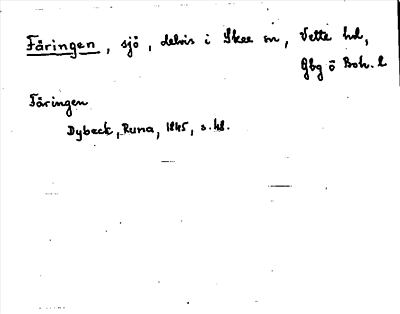 Färingen, sjö, delvis i Skee sn, Vette hd,
Gbg ö Boh. l
Färingen
Dybeck, Runa, 1845, s. 48.